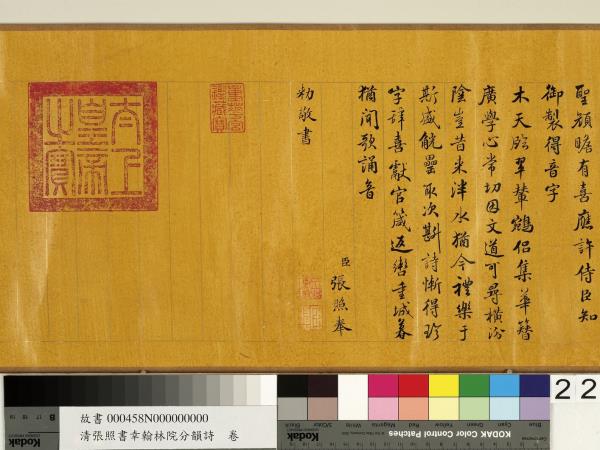 聖顏瞻有喜應許侍臣知
御製得音字
木天 翠輦鵷侶集華簪
廣學心常切因文道可尋橫汾
陰豈昔來泮水猶今禮樂于
斯盛觥罍取次斟詩慚得珍
字辞喜獻官箴返轡重城暮
猶聞歌誦音
臣張照奉
勅敬書
重華宮鑑藏寶
太上皇帝之寶
故書 000458N000000000
清張照書幸翰林院分韻詩 卷
KODAK Color Control Patches
Blue
Cyan
Green
Yellow
Red
Magenta
White
Black
Kodak
Kodak
22